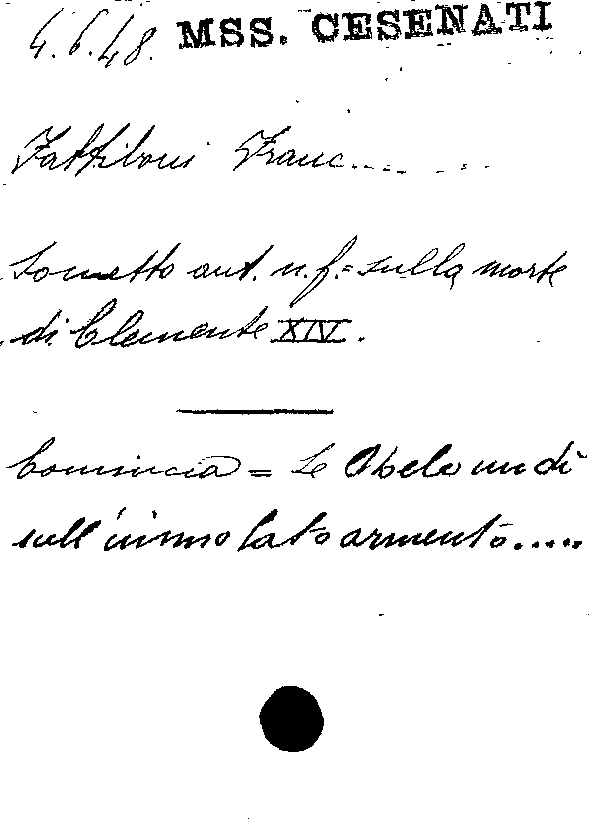 4.6.48. MSS. CESENATI
Fattiboni Franc.....
Sonetto aut. n. f. = sulla morte
di Clemente XIV.
Comincia = Se Abele un dì
sull'immolato armento.....